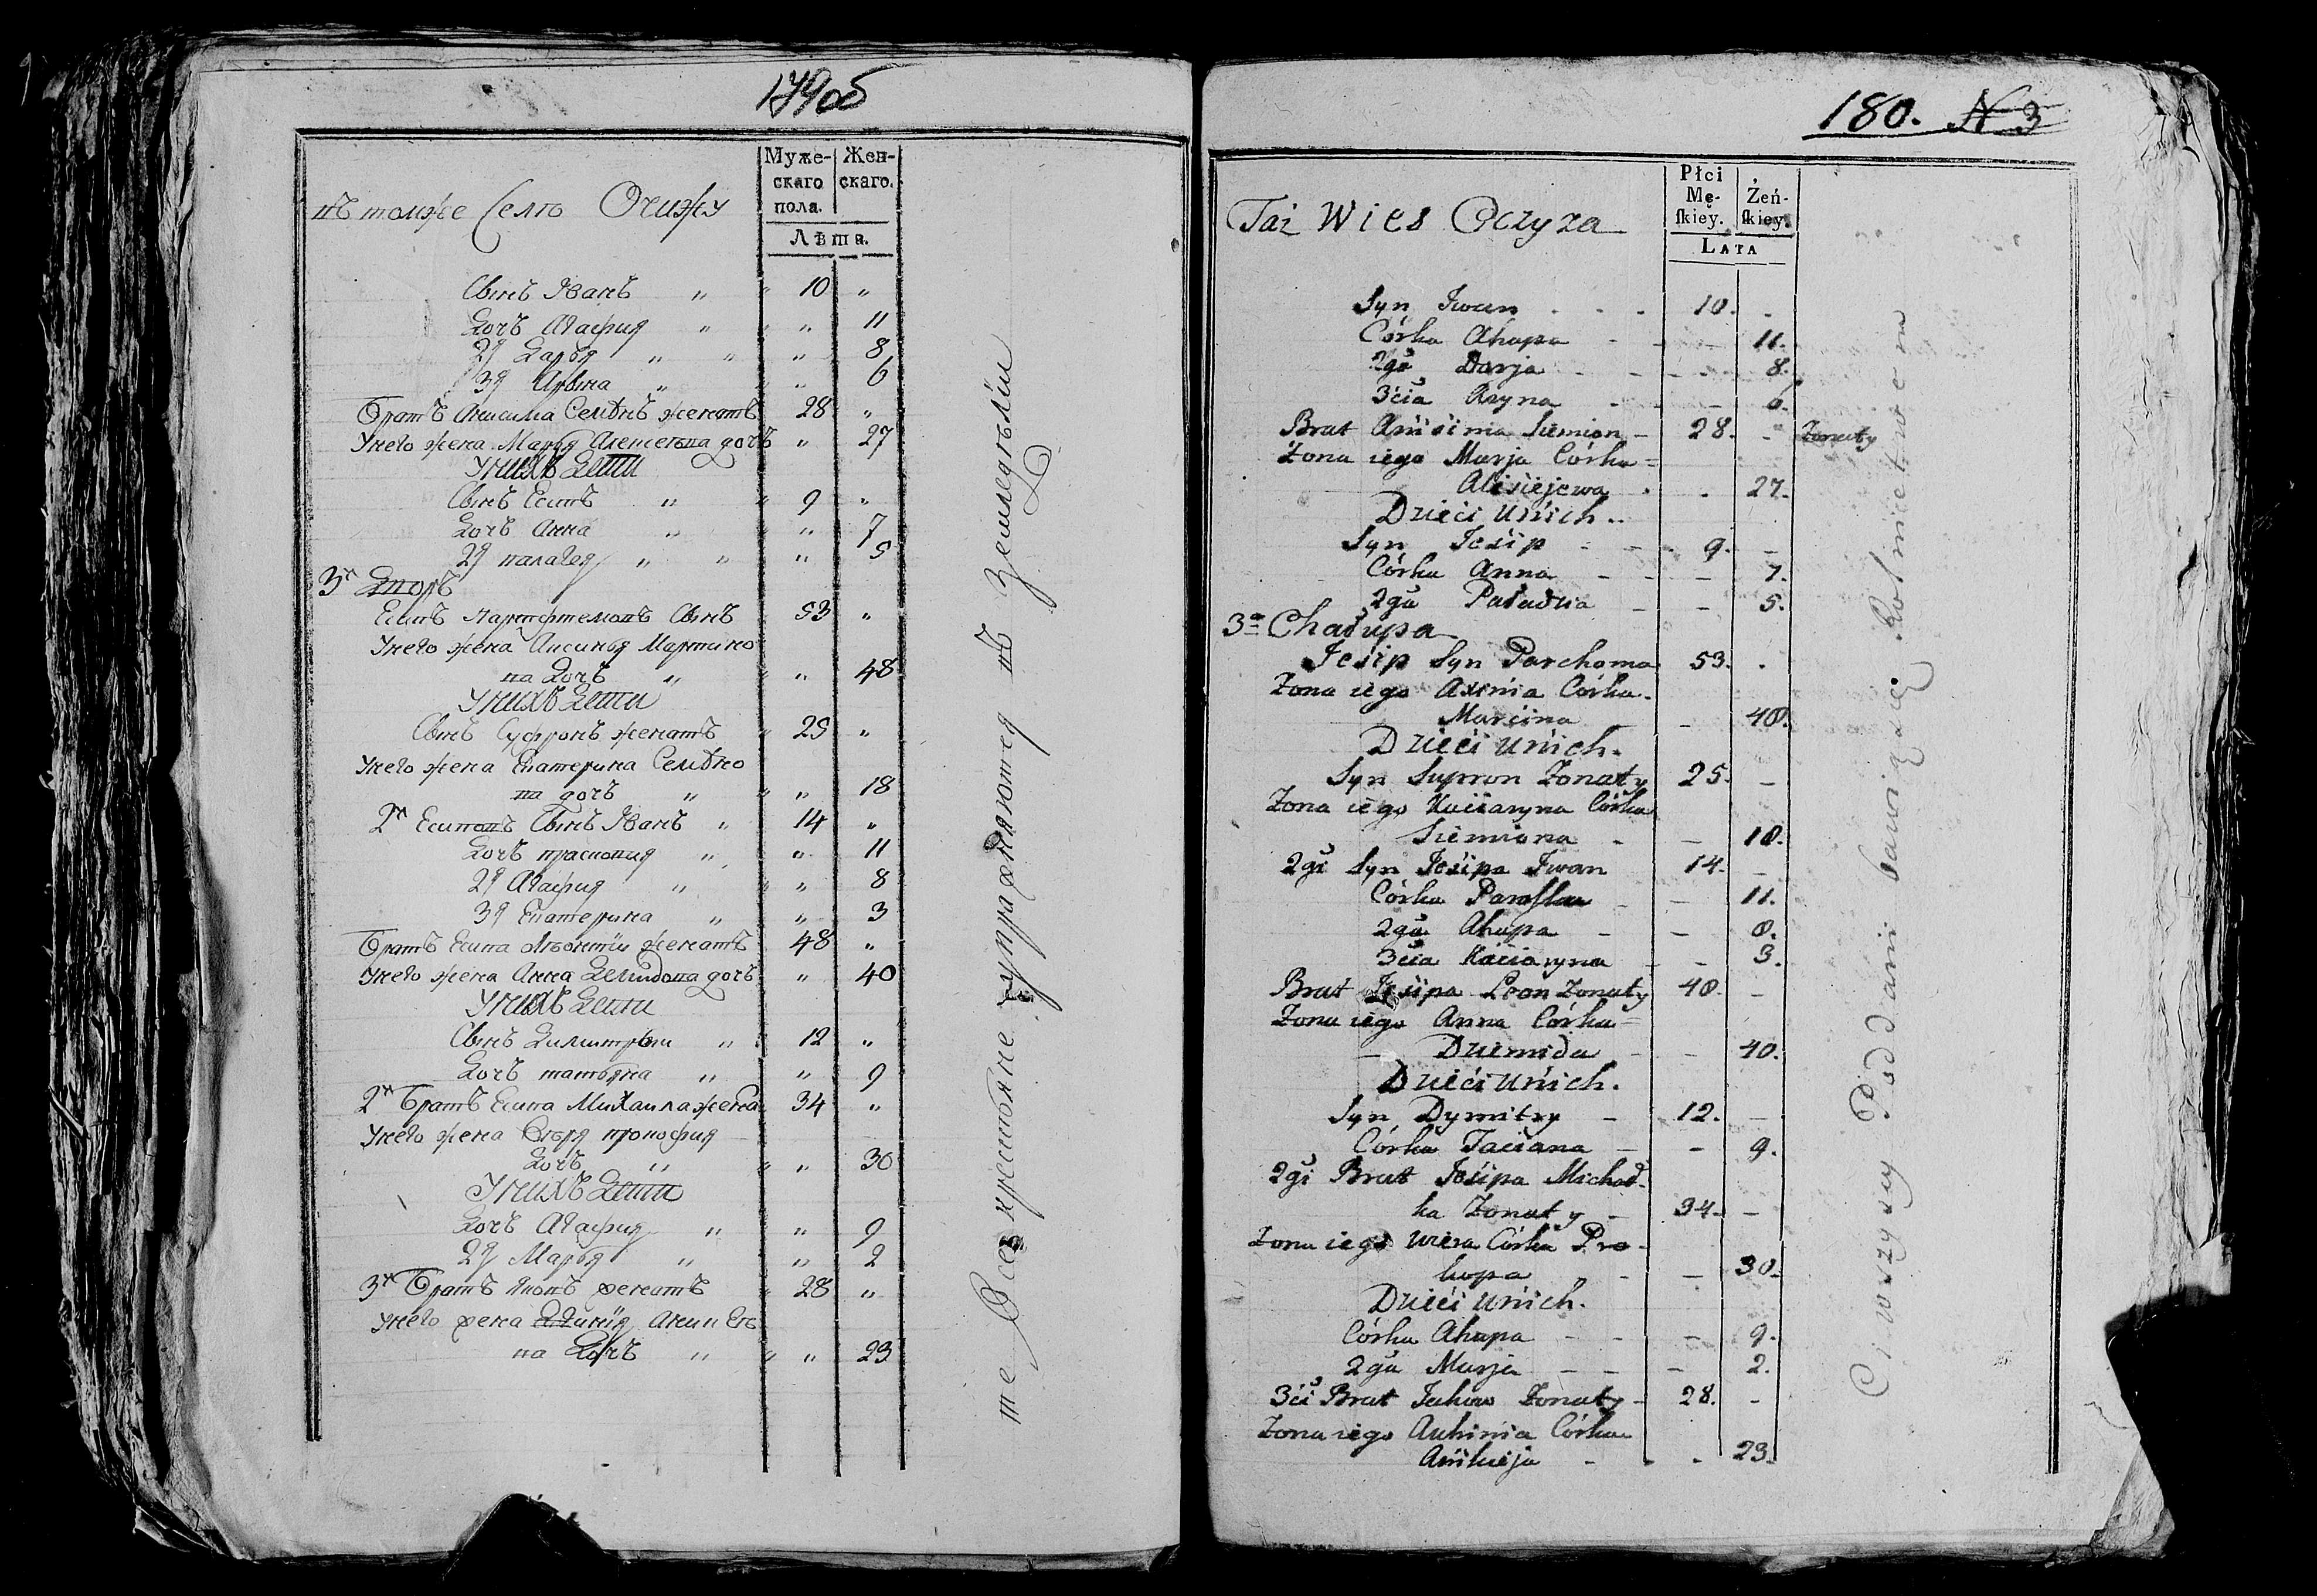 179об
въ томже Селѣ Очижу
Муже-
скаго
пола.
Жен-
скаго.
Лѣта.
Сынъ Иванъ „ „ 10 „
Дочь Агафия „ „ „ 11
2я Дарья „ „ „ 8
3я Арына „ „ „ 6
Братъ Анисима Семёнъ женатъ 28 „
Унего жена Марья Алексеева дочь „ 27
Унихъ Дети
Сынъ Есипъ „ „ 9 „
Дочь Анна „ „ „ 7
2я палагея „ „ „ 5
3й Дворъ
Есипъ Сынъ 53 „
Унего жена Аксинья Мартино
ва Дочь „ „ „ 48
Унихъ Дети
Сынъ Суфронъ женатъ „ 25 „
Унего жена Екатерина Семёно
ва дочь „ „ „ 18
2й Есиповъ Сынъ Иванъ „ 14 „
Дочь прасковия „ „ 11
2я Агафия „ „ „ 8
3я Екатерина „ „ 3
Братъ Есипа Леонтiи женатъ 48 „
Унего жена Анна Демидова дочь „ 40
Унихъ Дети
Сынъ Димитрыи „ „ 12 „
Дочь татьяна „ „ 9
2й братъ Есипа Михаила жена 34 „
Унего жена прокофия
Дочь „ „ „ 30
Унихъ Дети
Дочь Агафия „ „ 9
2я Марья „ „ 2
3й братъ женатъ „ 28 „
Унего жена
ва Дочь „ „ „ 23
те Все крестьяне упражняются въ Земледѣлiи
180. N 3
Taż Wieś Oczyza
Płci
Mę-
ſkiey.
Żeń-
ſkiey.
LATA
Syn Iwan . . . 10. .
Córka Ahapa - - - 11.
2ga Darja - - - 8.
3cia Aryna - - 6.
Brat Anisima Siemion - 28. - Żonaty
Żona iego Marja Córka =
Alisiejewa . . 27.
Dzieci unich..
Syn Jesip - - 9. -
Córka Anna - - - 7.
2ga Pałachia - - 5.
3a Chałupa
Jesip Syn Parchoma 53. .
Żona iego Axinia Córka.
Marcina - 48.
Dzieci unich.
Syn Supron Żonaty 25. -
Żona iego Kaciaryna Córka
Siemiona - - 18.
2gi Syn Jesipa Iwan 14. -
Córka Paraska - - 11.
2ga Ahapa - - 8.
3cia Kaciaryna - - 3.
Brat Jesipa Leon Żonaty 48. -
Żona iego Anna Córka =
Dziemida - - 40.
Dzieci unich.
Syn Dymitry - 12. -
Córka Taciana - - 9.
2gi Brat Jesipa Michał-
ka Żonaty - 34. -
Żona iego Wiera Córka Pro-
kopa - - 30.
Dzieci unich.
Córka Ahapa - - - 9.
2ga Marja - - - 2.
3ci Brat Jakow Żonaty - 28. -
Żona iego Auhinia Córka
Anikieja - . . 23.
Ci wszyscy Poddani bawią się Rolnictwem